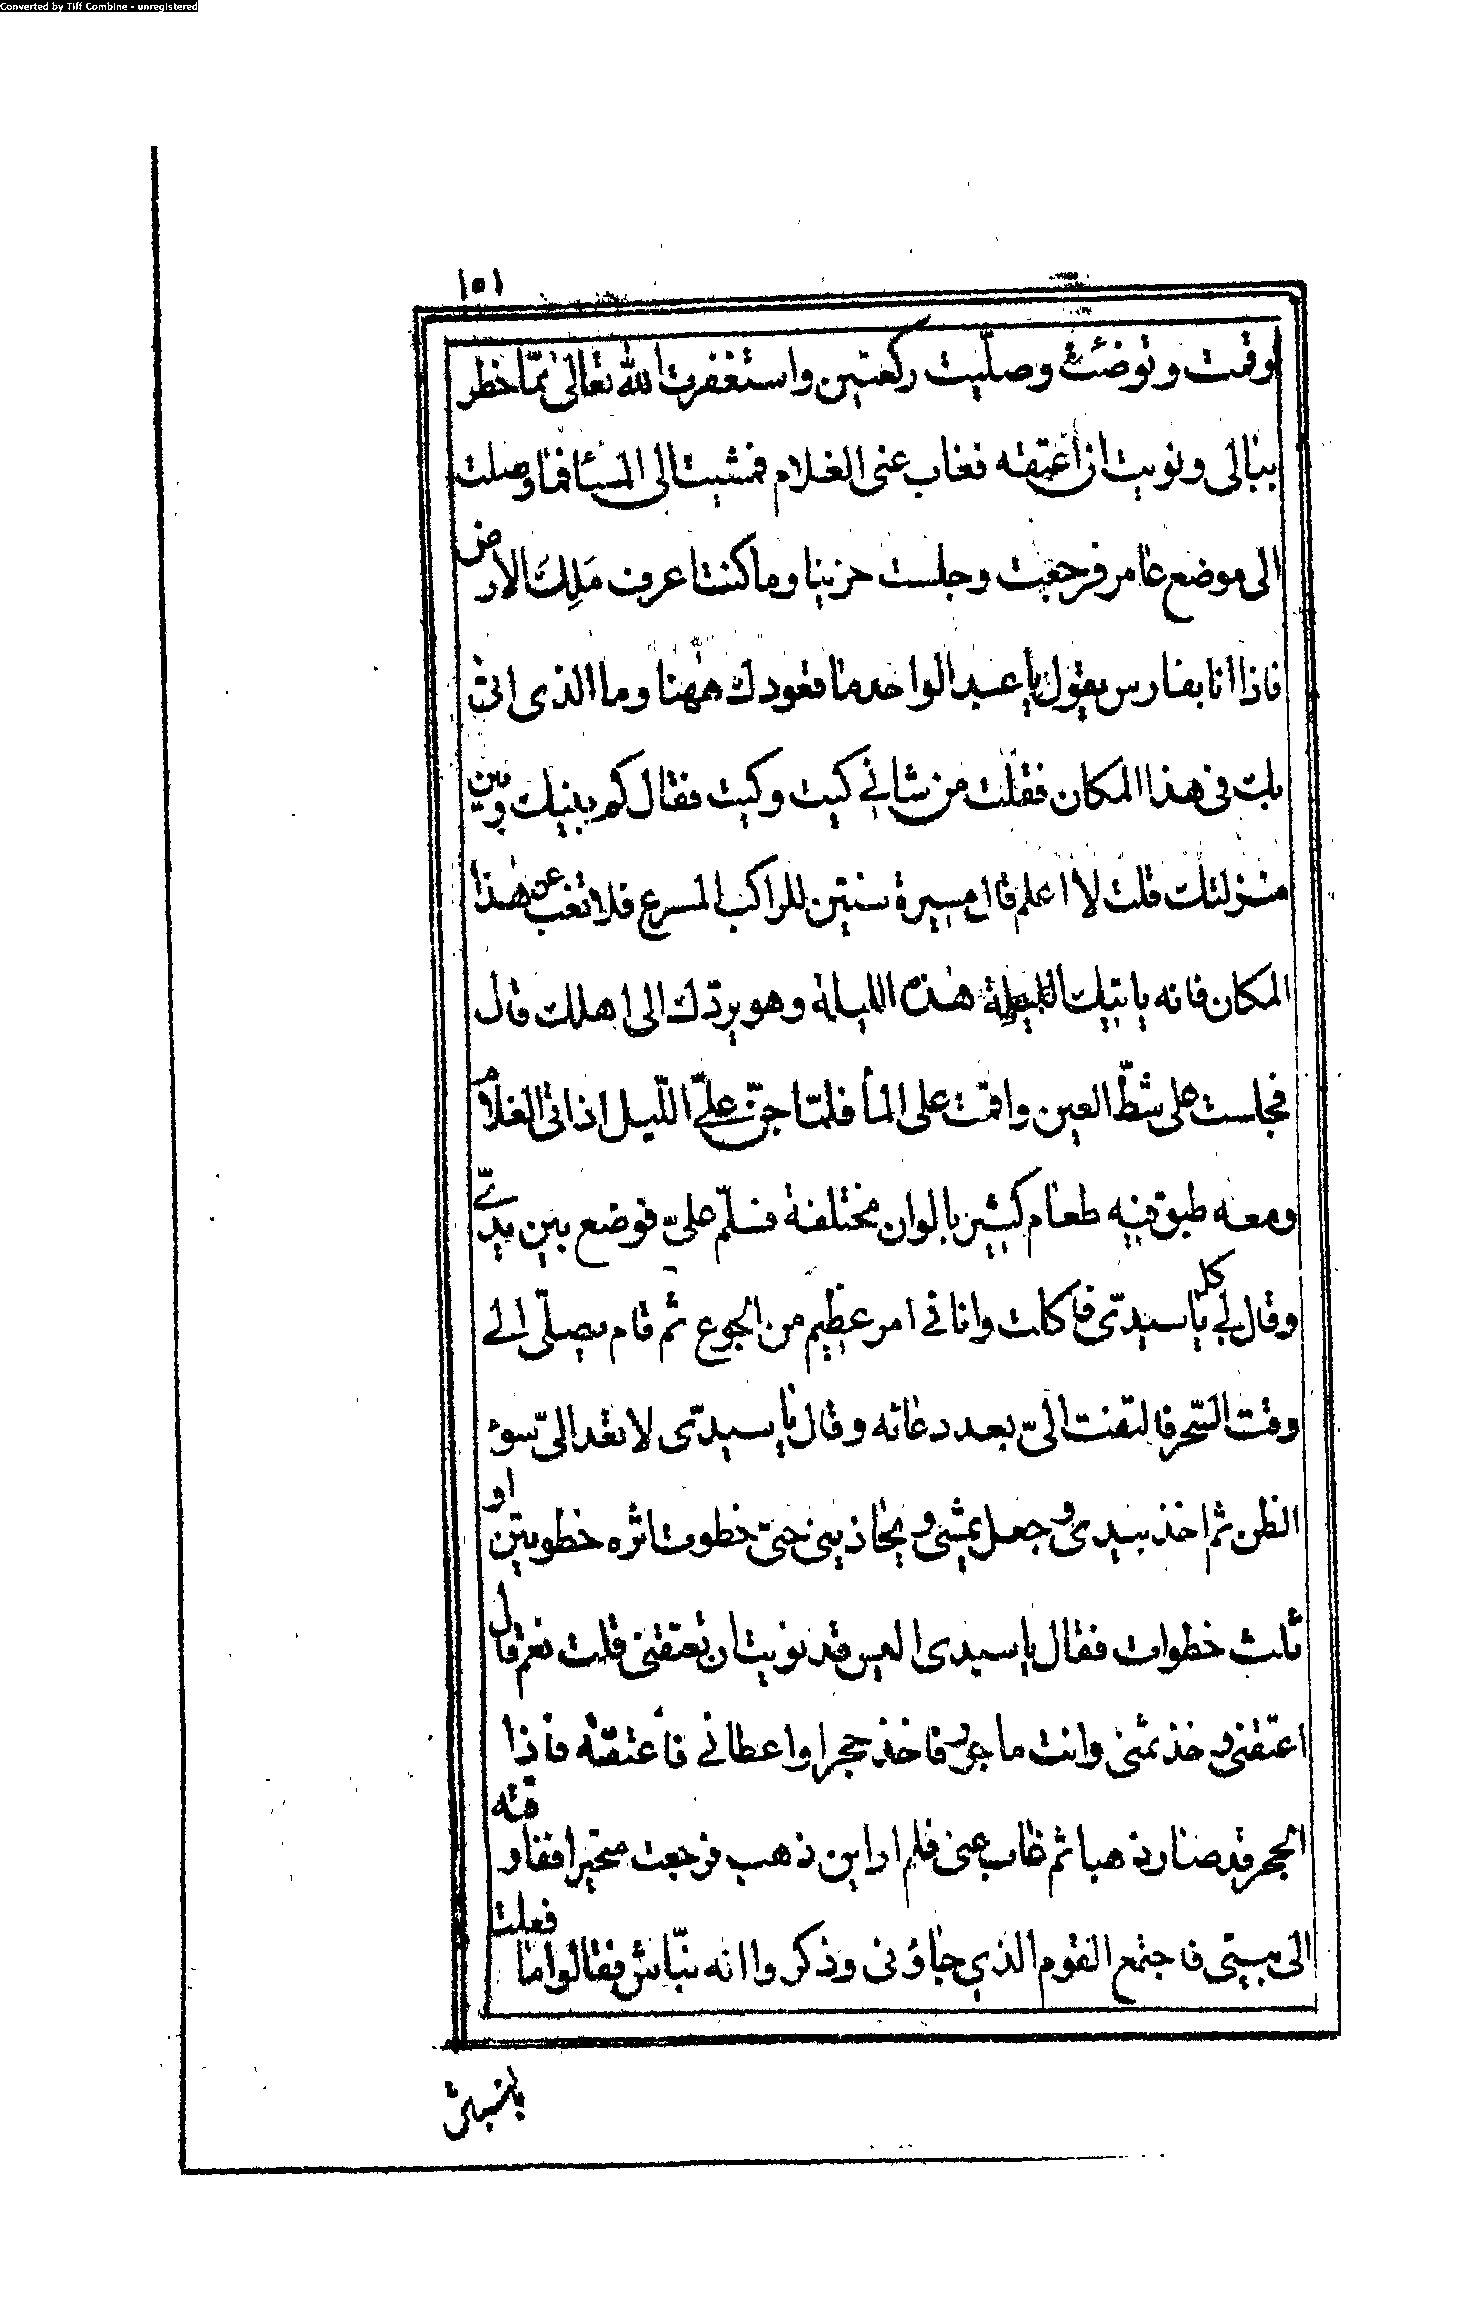 Converted by Tiff Combine - unregistered
١٥١
وقمت وتوضئت وصلّيت ركعتين واستغفرت الله تعالى ممّا خطر
ببالى ونويت ان اعتقه فغاب عنى الغلام فمشيت الى المسا فما وصلت
الى موضع عامر فرجعت وجلست حزينا وما كنت اعرف مَلِكَ الارض
فاذا انا بفارس يقول يا عبد الواحد ما قعودك ههنا وما الذى اتى
بك فى هذا المكان فقلت من شانى كيت وكيت فقال كم بينك وبين
منزلتك قلت لا اعلم قال مسيرة سنتين للراكب المسرع فلا تغب عن هذا
المكان فانه ياتيك هذه الليلة وهو يردّك الى اهلك قال
فجلست على شطّ العين واقمت على الماء فلمّا جنّ علىّ اللّيل اذ اتى الغلام
ومعه طبق فيه طعام كثير بالوان مختلفة فسلّم علىّ فوضع بين يدىّ
وقال لى كل يا سيدىّ فاكلت وانا فى امر عظيم من الجوع ثم قام يصلّى الى
وقت السّحر فالتفت الىّ بعد دعائه وقال يا سيدىّ لا تعد الىّ سوء
الظن ثم اخذ بيدى وجعل يمشى ويحاذينى حتىّ خطوت اثره خطوتين او
ثلث خطوات فقال يا سيدى اليس قد نويت ان تعتقنى قلت نعم قال
اعتقنى وخذ ثمنى وانت ماجور فاخذ حجرا واعطانى فأعتقته فاذا
الحجر قد صار ذهبا ثم غاب عنى فلم ار اين ذهب فرجعت متحيرا افقا وقته
الى بيتى فاجتمع القوم الذى جاؤنى وذكروا انه نبّاش فقالوا ما فعلت
بالنباش